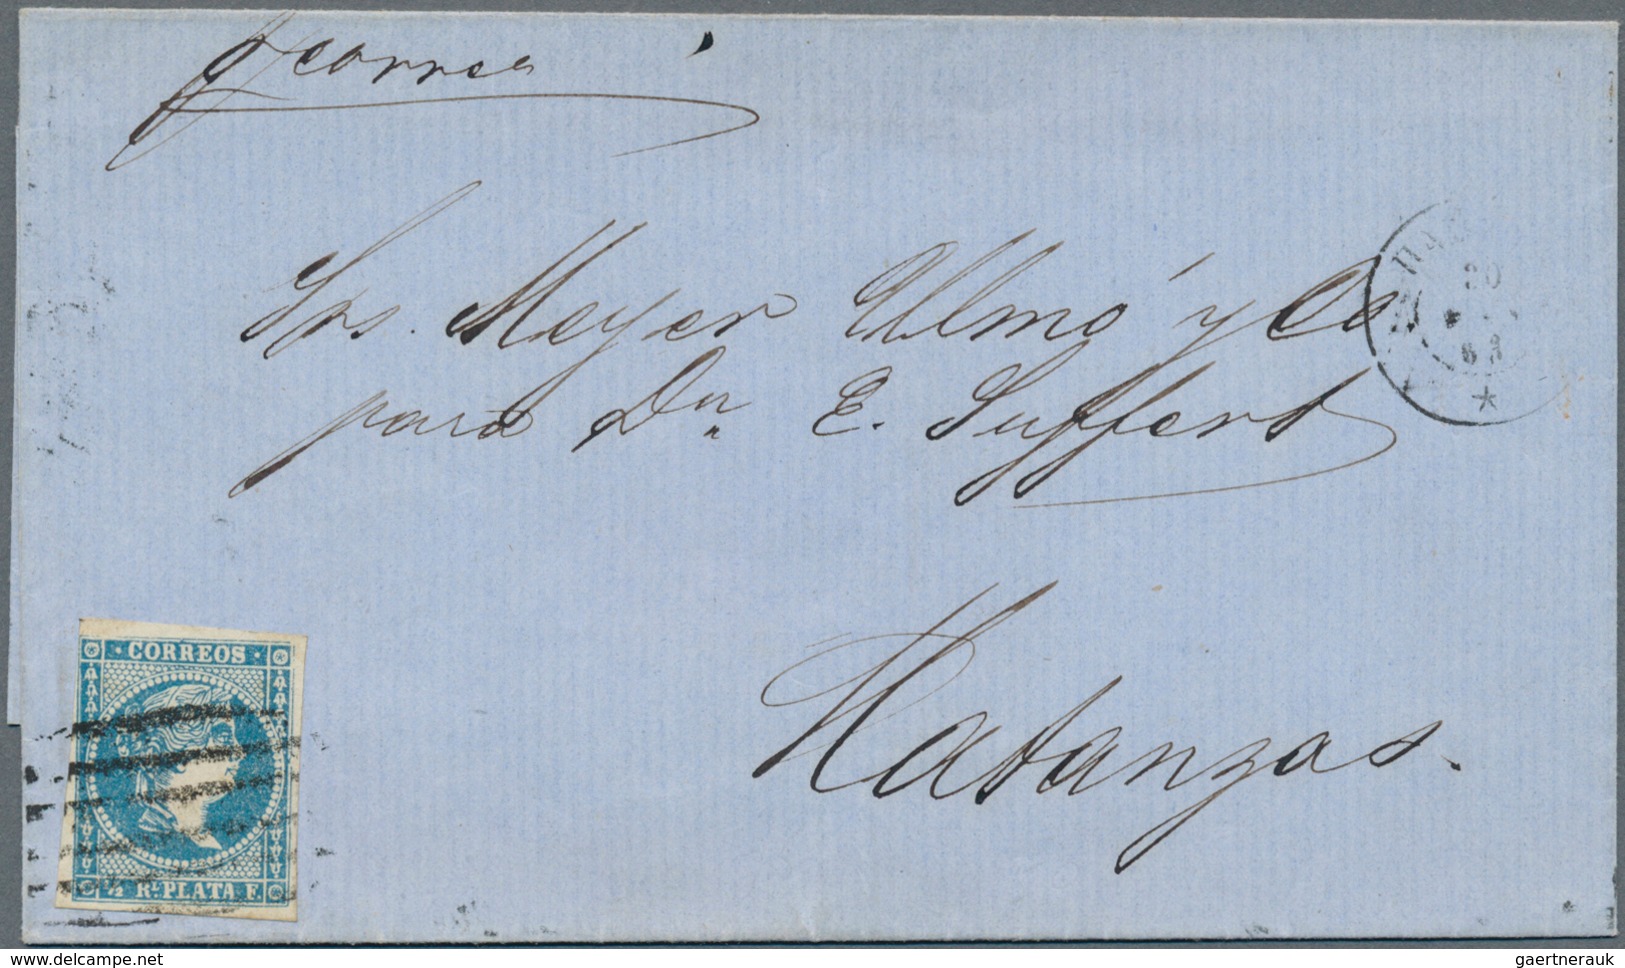 correo
Srs. Meyer Ulmo y Co
para Dn E. Suffert
Matanzas.
30
63
CORREOS
Rl. PLATA F.
www.delcampe.net
gaertnerauk